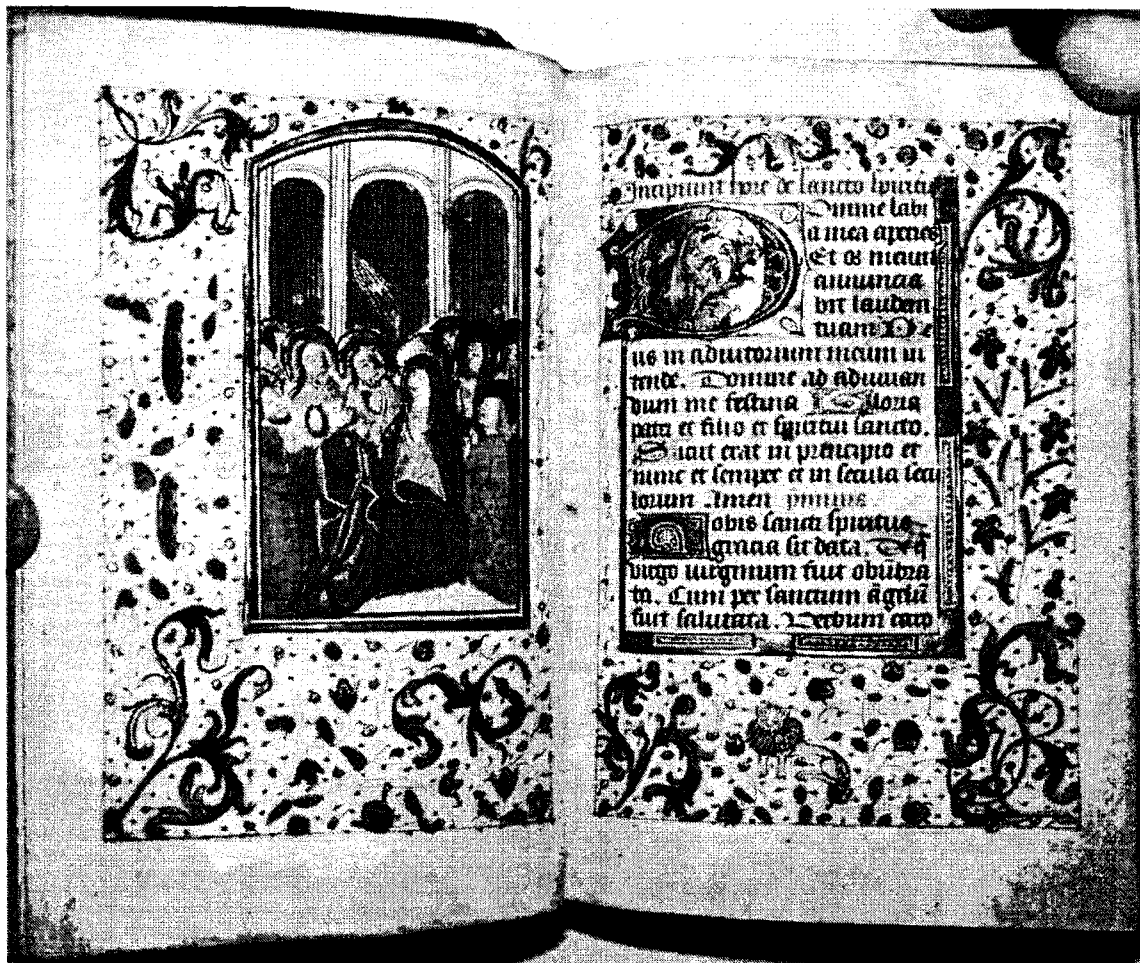 Incipiunt hore de sancto spiritu
Domine labi
a mea aperies
Et os meum
annuncia
bit laudem
tuam De
us in adiutorium meum in
tende. Domine ad adiuuan
dum me festina Gloria
patri et filio et spiritui sancto.
Sicut erat in principio et
nunc et semper et in secula secu
lorum Amen ymnus
Nobis sancti spiritus
gracia sit data. De q̄
virgo virginum fuit obūbra
ta. Cum per sanctum āgelū
fuit salutata. Verbum caro